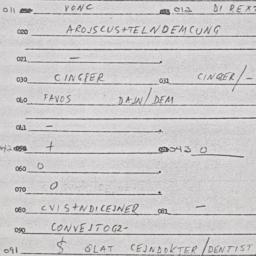 011 VONC 012 DIREXT
020 AROJSCUS+TELNDEMCUNG
021 —
030 CINGFER 031 CINGER/—
040 FAVOS DAJN/DEM
041 —
+ 043 0
060 0
070 0
080 CVIS+NDICEJNER 081 —
090 CONVESTOGR-
091 $ GLAT CEJNDOKTER/DENTIST